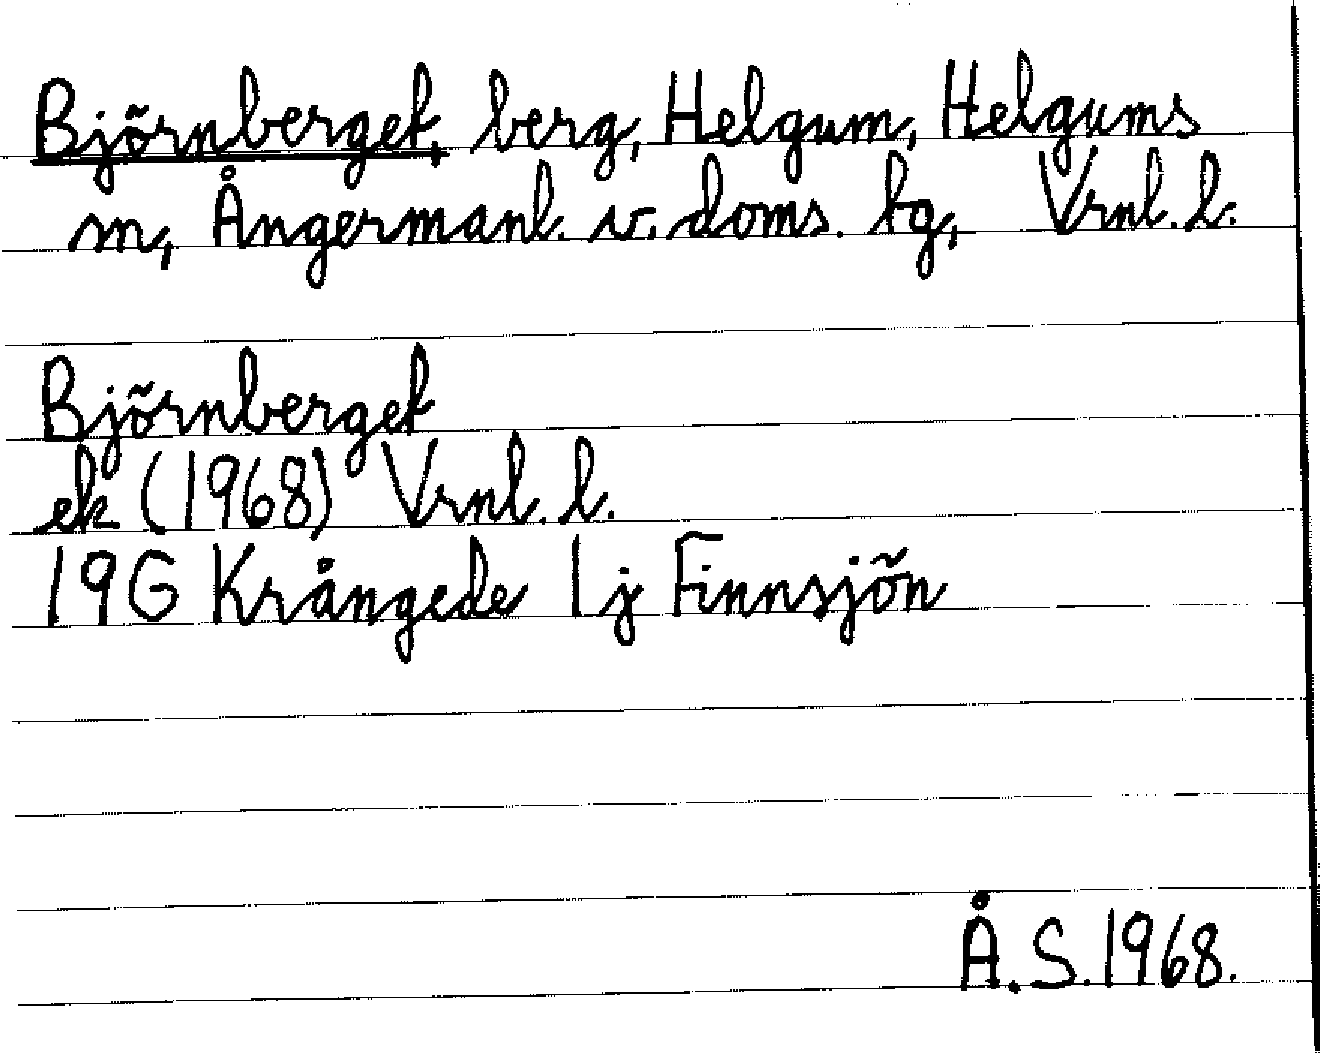 Björnberget, berg, Helgum, Helgums
sn, Ångermanl. v. doms. tg, Vrnl. l.
Björnberget
ek (1968) Vrnl. l.
19G Krångede 1j Finnsjön
Å.S. 1968.